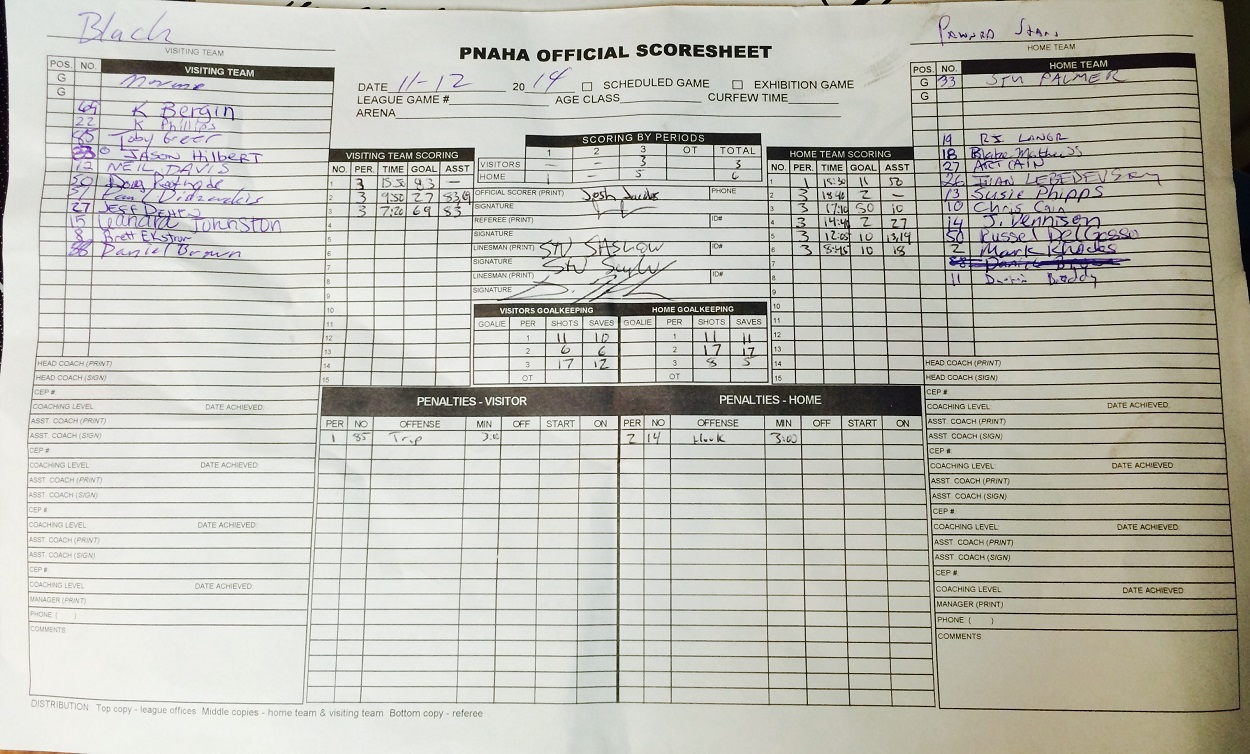 Black
VISITING TEAM
PNAHA OFFICIAL SCORESHEET
HOME TEAM
DATE 11-12 2014 SCHEDULED GAME EXHIBITION GAME
LEAGUE GAME # AGE CLASS CURFEW TIME
ARENA
POS. NO. VISITING TEAM
G
G
69 K Bergin
22 K Phillips
85 Toby Greer
JASON Hilbert
12 NEIL DAVIS
Doug
27 Jeff
15 Johnston
8 Brett Ekstrom
Daniel Brown
VISITING TEAM SCORING
NO. PER. TIME GOAL ASST
1 3 15:56 93 —
2 3 9:50 27 83,69
3 3 7:20 69 83
4
5
6
7
8
9
10
11
12
13
14
15
SCORING BY PERIODS
1 2 3 OT TOTAL
VISITORS — — 3 3
HOME 1 — 5 6
OFFICIAL SCORER (PRINT) Josh PHONE
SIGNATURE
REFEREE (PRINT) ID#
SIGNATURE
LINESMAN (PRINT) ID#
SIGNATURE
LINESMAN (PRINT) ID#
SIGNATURE
VISITORS GOALKEEPING
GOALIE PER SHOTS SAVES
1 11 10
2 6 6
3 17 12
OT
HOME GOALKEEPING
GOALIE PER SHOTS SAVES
1 11 11
2 17 17
3 8 5
OT
HOME TEAM SCORING
NO. PER. TIME GOAL ASST
1 1 15:30 11 50
2 3 18:40 2 —
3 3 17:10 50 10
4 3 14:40 2 27
5 3 12:05 10 13,14
6 3 8:45 10 18
7
8
9
10
11
12
13
14
15
POS. NO. HOME TEAM
G 33 STU PALMER
G
19 RJ LANGR
18 Blake Mathews
27 ART CAIN
26 IVAN LEBEDEVSKY
13 Susie Phipps
10 Chris Cain
14 J. Vennison
50 Russel DelGosso
2 Mark Rhodes
11
HEAD COACH (PRINT)
HEAD COACH (SIGN)
CEP #
COACHING LEVEL DATE ACHIEVED:
ASST. COACH (PRINT)
ASST. COACH (SIGN)
CEP #
COACHING LEVEL DATE ACHIEVED
ASST. COACH (PRINT)
ASST. COACH (SIGN)
CEP #
COACHING LEVEL DATE ACHIEVED
ASST. COACH (PRINT)
ASST. COACH (SIGN)
CEP #
COACHING LEVEL DATE ACHIEVED
MANAGER (PRINT)
PHONE ( )
COMMENTS
PENALTIES - VISITOR
PER NO OFFENSE MIN OFF START ON
1 85 Trip 3:00
PENALTIES - HOME
PER NO OFFENSE MIN OFF START ON
2 14 Hook 3:00
HEAD COACH (PRINT)
HEAD COACH (SIGN)
CEP #
COACHING LEVEL DATE ACHIEVED:
ASST. COACH (PRINT)
ASST. COACH (SIGN)
CEP #
COACHING LEVEL DATE ACHIEVED
ASST. COACH (PRINT)
ASST. COACH (SIGN)
CEP #
COACHING LEVEL DATE ACHIEVED:
ASST. COACH (PRINT)
ASST. COACH (SIGN)
CEP #
COACHING LEVEL DATE ACHIEVED
MANAGER (PRINT)
PHONE ( )
COMMENTS
DISTRIBUTION Top copy - league offices Middle copies - home team & visiting team Bottom copy - referee